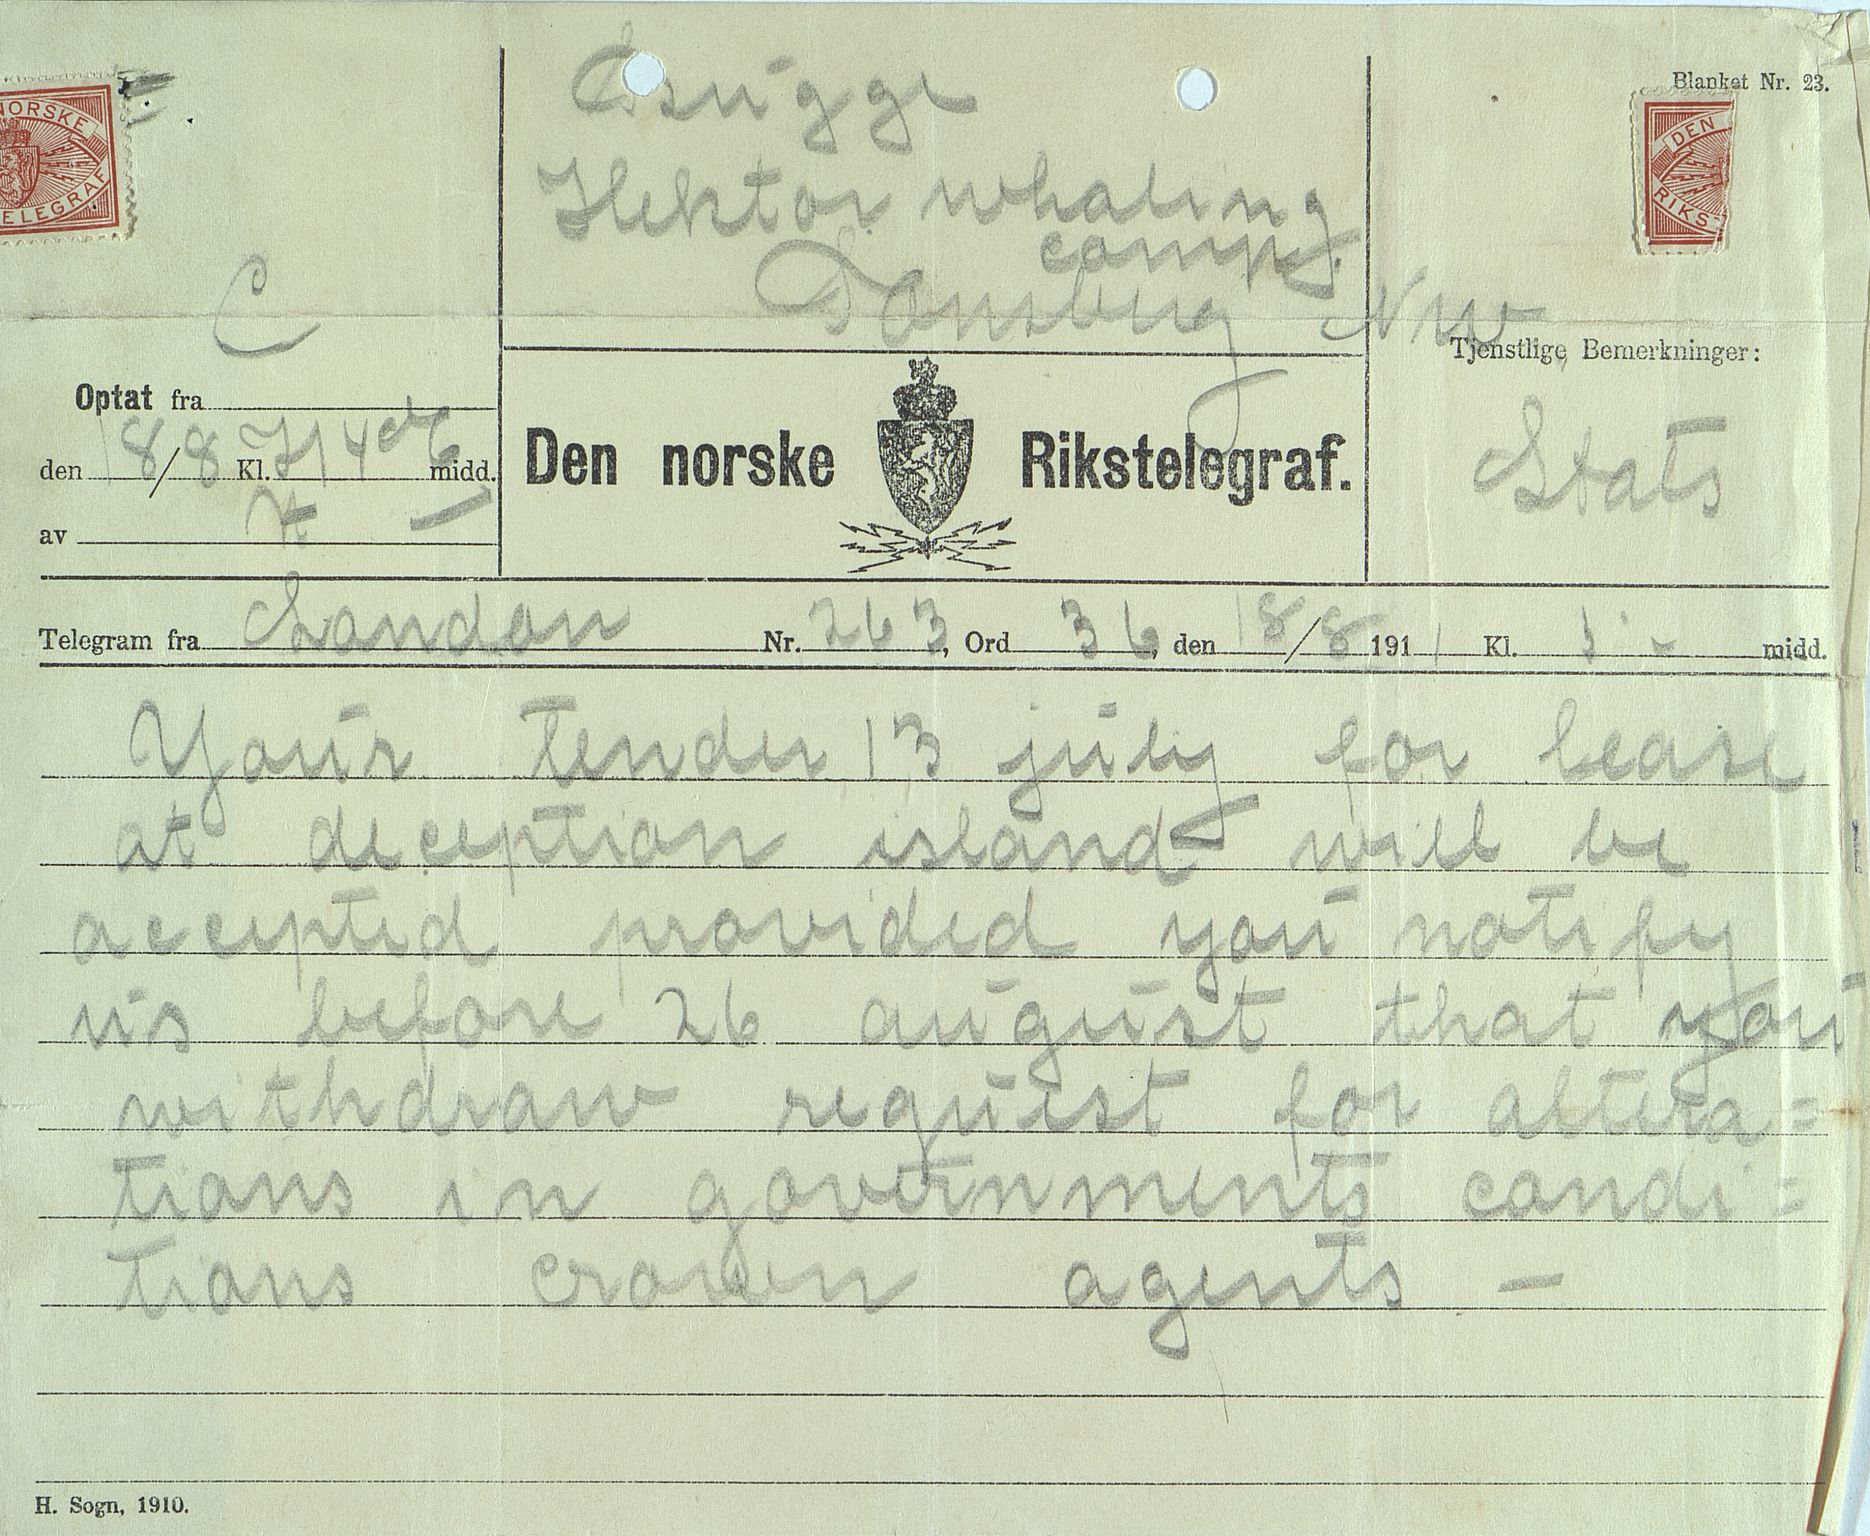 Blanket Nr. 23.
NORSKE
TELEGRAF
DEN
RIKS
Brügge
Hektor whaling
comp.
Tönsberg Nrw
C
Tjenstlige Bemerkninger:
Optat fra
den 18/8 Kl. midd.
av
Den norske Rikstelegraf.
Stats
Telegram fra London Nr. 263, Ord 36, den 18/8 1911 Kl. midd.
Your tender 13 july for lease
at deception island will be
accepted provided you notify
us before 26 august that you
withdraw request for altera=
tions in governments condi=
tions crown agents —
H. Sogn, 1910.